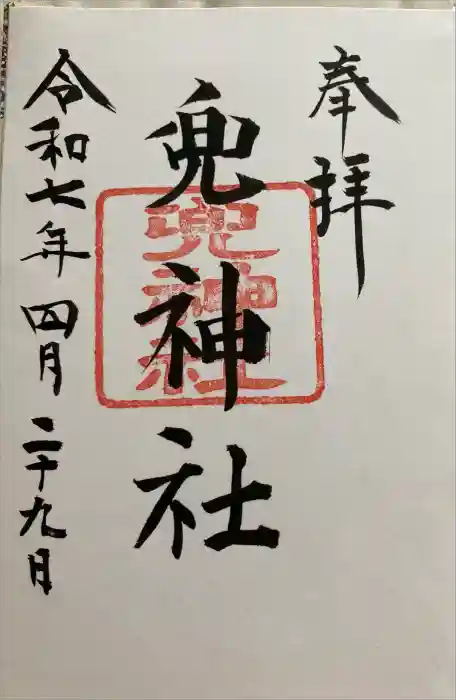 奉拝
兜神社
兜神社
令和七年四月二十九日